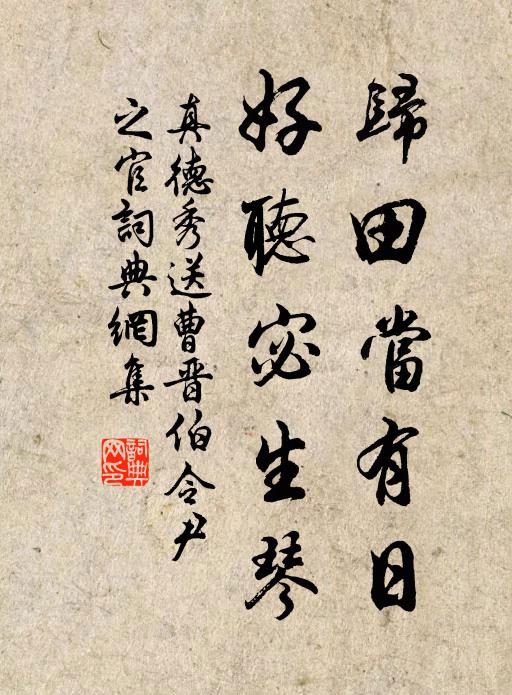 歸田當有日
好聽宓生琴
真德秀送曹晋伯令尹
之官詞典網集
詞典
网印